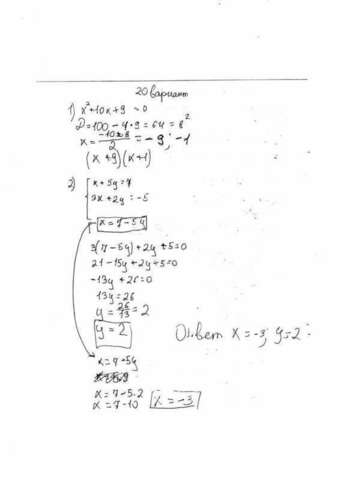 20 вариант
1) x²+10x+9=0
D=100-4·9=64=8²
x=(-10±8)/2=-9; -1
(x+9)(x+1)
2) { x+5y=7
3x+2y=-5
x=7-5y
3(7-5y)+2y+5=0
21-15y+2y+5=0
-13y+26=0
13y=26
y=26/13=2
y=2
Ответ x=-3; y=2
x=7-5y
x=7-5·2
x=7-10 x=-3